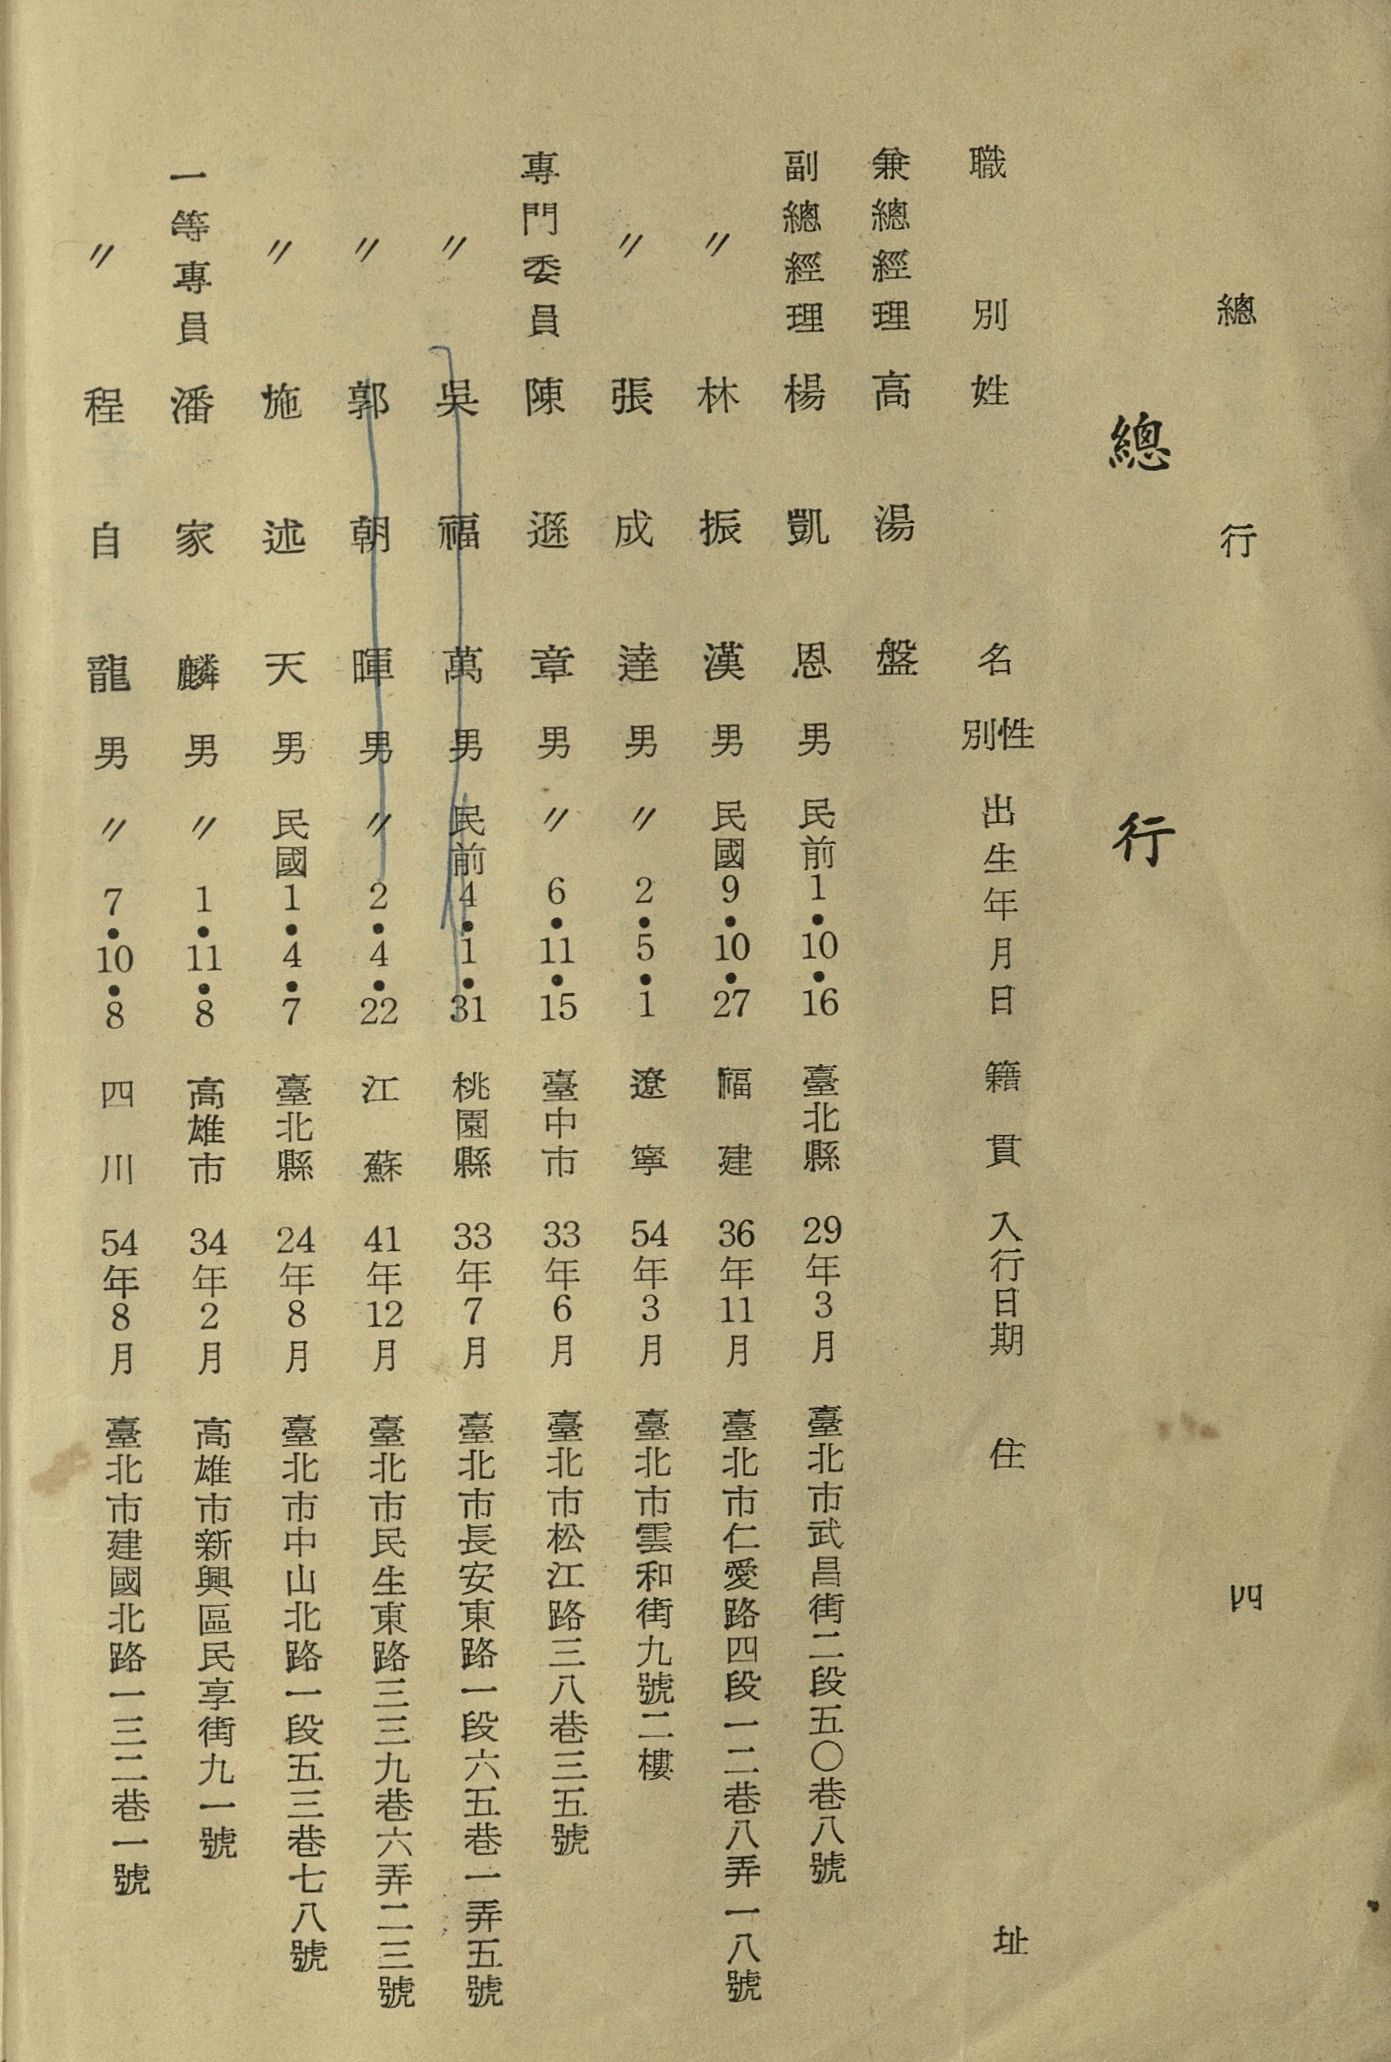 總行 四
總行
職別 姓名 性別 出生年月日 籍貫 入行日期 住址
兼總經理 高湯盤
副總經理 楊凱恩 男 民前1•10•16 臺北縣 29年3月 臺北市武昌街二段五〇巷八號
〃 林振漢 男 民國9•10•27 福建 36年11月 臺北市仁愛路四段一二巷八弄一八號
〃 張成達 男 〃2•5•1 遼寧 54年3月 臺北市雲和街九號二樓
專門委員 陳遜章 男 〃6•11•15 臺中市 33年6月 臺北市松江路三八巷三五號
〃 吳福萬 男 民前4•1•31 桃園縣 33年7月 臺北市長安東路一段六五巷一弄五號
〃 郭朝暉 男 〃2•4•22 江蘇 41年12月 臺北市民生東路三三九巷六弄二三號
〃 施述天 男 民國1•4•7 臺北縣 24年8月 臺北市中山北路一段五三巷七八號
一等專員 潘家麟 男 〃1•11•8 高雄市 34年2月 高雄市新興區民享街九一號
〃 程自龍 男 〃7•10•8 四川 54年8月 臺北市建國北路一三二巷一號